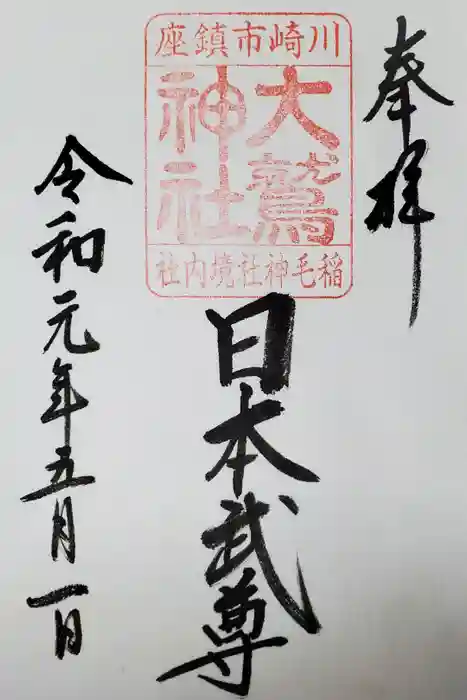 奉拝
川崎市鎮座
大鷲
神社
稲毛神社境内社
日本武尊
令和元年五月一日